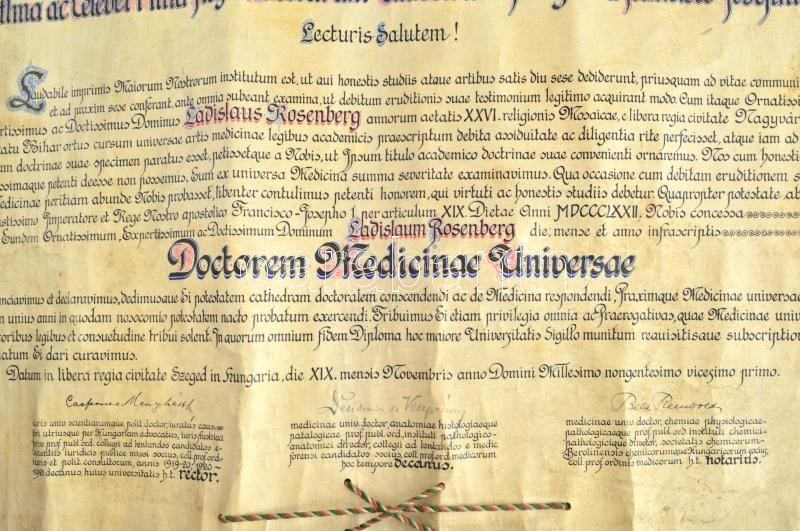 Lecturis Salutem!
Laudabile imprimis Maiorum Nostrorum institutum est, ut qui honestis studiis atque artibus satis diu sese dediderunt, priusquam ad vitae communi
et ad praxim sese conferant, ante omnia subeant examina, ut debitum eruditionis suae testimonium legitimo acquirant modo. Cum itaque Ornatissi
ertissimus ac Doctissimus Dominus Ladislaus Rosenberg annorum aetatis XXVI. religionis Mosaicae, e libera regia civitate Nagyvár
tatu Bihar ortus cursum universae artis medicinae legibus academicis praescriptum debita assiduitate ac diligentia rite perfecisset, atque iam ad
nn doctrinae suae specimen paratus esset, petissetque a Nobis, ut Ipsum titulo academico doctrinae suae convenienti ornaremus. Nos cum honesti
issimaque petenti deesse non possemus, Eum ex universa Medicina summa severitate examinavimus. Qua occasione cum debitam eruditionem s
Medicinae peritiam abunde Nobis probasset, libenter contulimus petenti honorem, qui virtuti ac honestis studiis debetur. Quapropter potestate ab
ustissimo Imperatore et Rege Nostro apostolico Francisco-Josepho I. per articulum XIX. Dietae Anni MDCCCLXXII. Nobis concessa
Eundem Ornatissimum, Expertissimum ac Doctissimum Dominum Ladislaum Rosenberg die, mense et anno infrascriptis
Doctorem Medicinae Universae
nciavimus et declaravimus, dedimusque Ei potestatem cathedram doctoralem conscendendi ac de Medicina respondendi, Praximque Medicinae universae
n unius anni in quodam nosocomio potestatem nacto probatum exercendi. Tribuimus Ei etiam privilegia omnia ac Praerogativas, quae Medicinae univ
oribus legibus et consuetudine tribui solent. In quorum omnium fidem Diploma hoc maiore Universitatis Sigillo munitum requisitisque subscription
natum Ei dari curavimus.
Datum in libera regia civitate Szeged in Hungaria, die XIX. mensis Novembris anno Domini Millesimo nongentesimo vicesimo primo.
uris univ. scientiarumque polit. doctor, iuratus caus
in utriusque per Hungariam advocatus, iuris
mic prof. publ. ord. collegii ad tentandos candidatos
scientiis iuridicis publice missi socius, coll. prof. ord.
iuris et polit. consultorum, annis 1919-20/1920-
1921 decanus, huius universitatis h.t. rector.
medicinae univ. doctor, anatomiae histologiaeque
patalogicae prof. publ. ord. instituti pathologico-
anatomici director, collegii ad tentandos e medic.
forensi candidatos socius, coll. prof. ord. e medicorum
hoc tempore decanus.
medicinae univ. doctor, chemiae physiologicae-
pathologicaeque prof. publ. ord. instituti chemici-
pathologicique director, societatis chemicorum
Berolinensis chemicorumque Hungaricorum socius,
coll. prof. ordinis medicorum h.t. notarius.